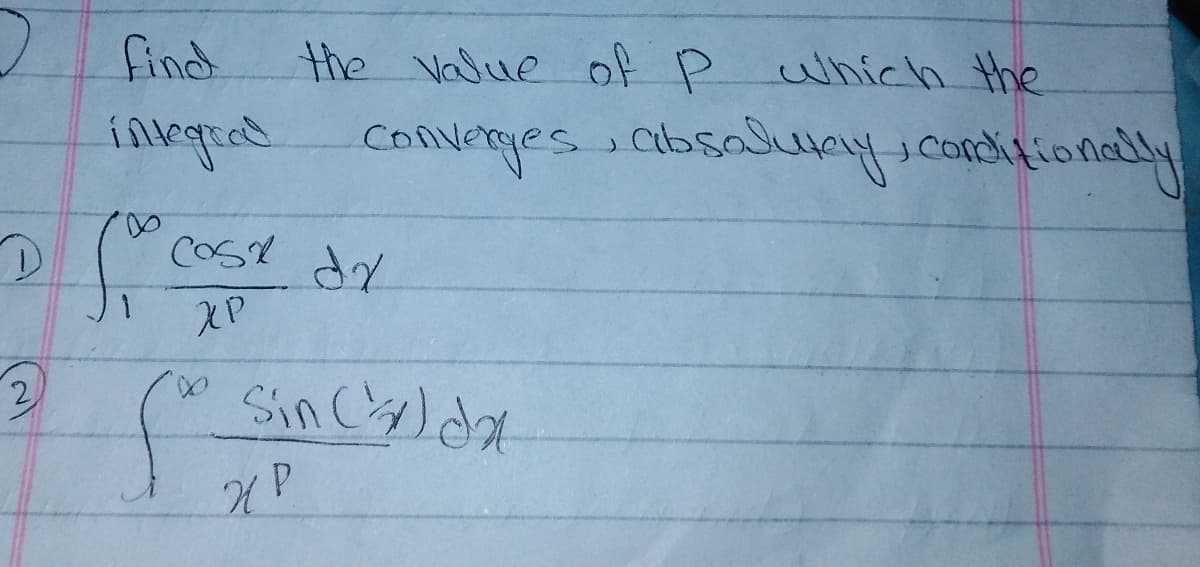 find the value of P which the
integral converges, absolutely, conditionally
① ∫₁^∞ cosx / x^P dx
② ∫₁^∞ sin(1/x) dx / x^P